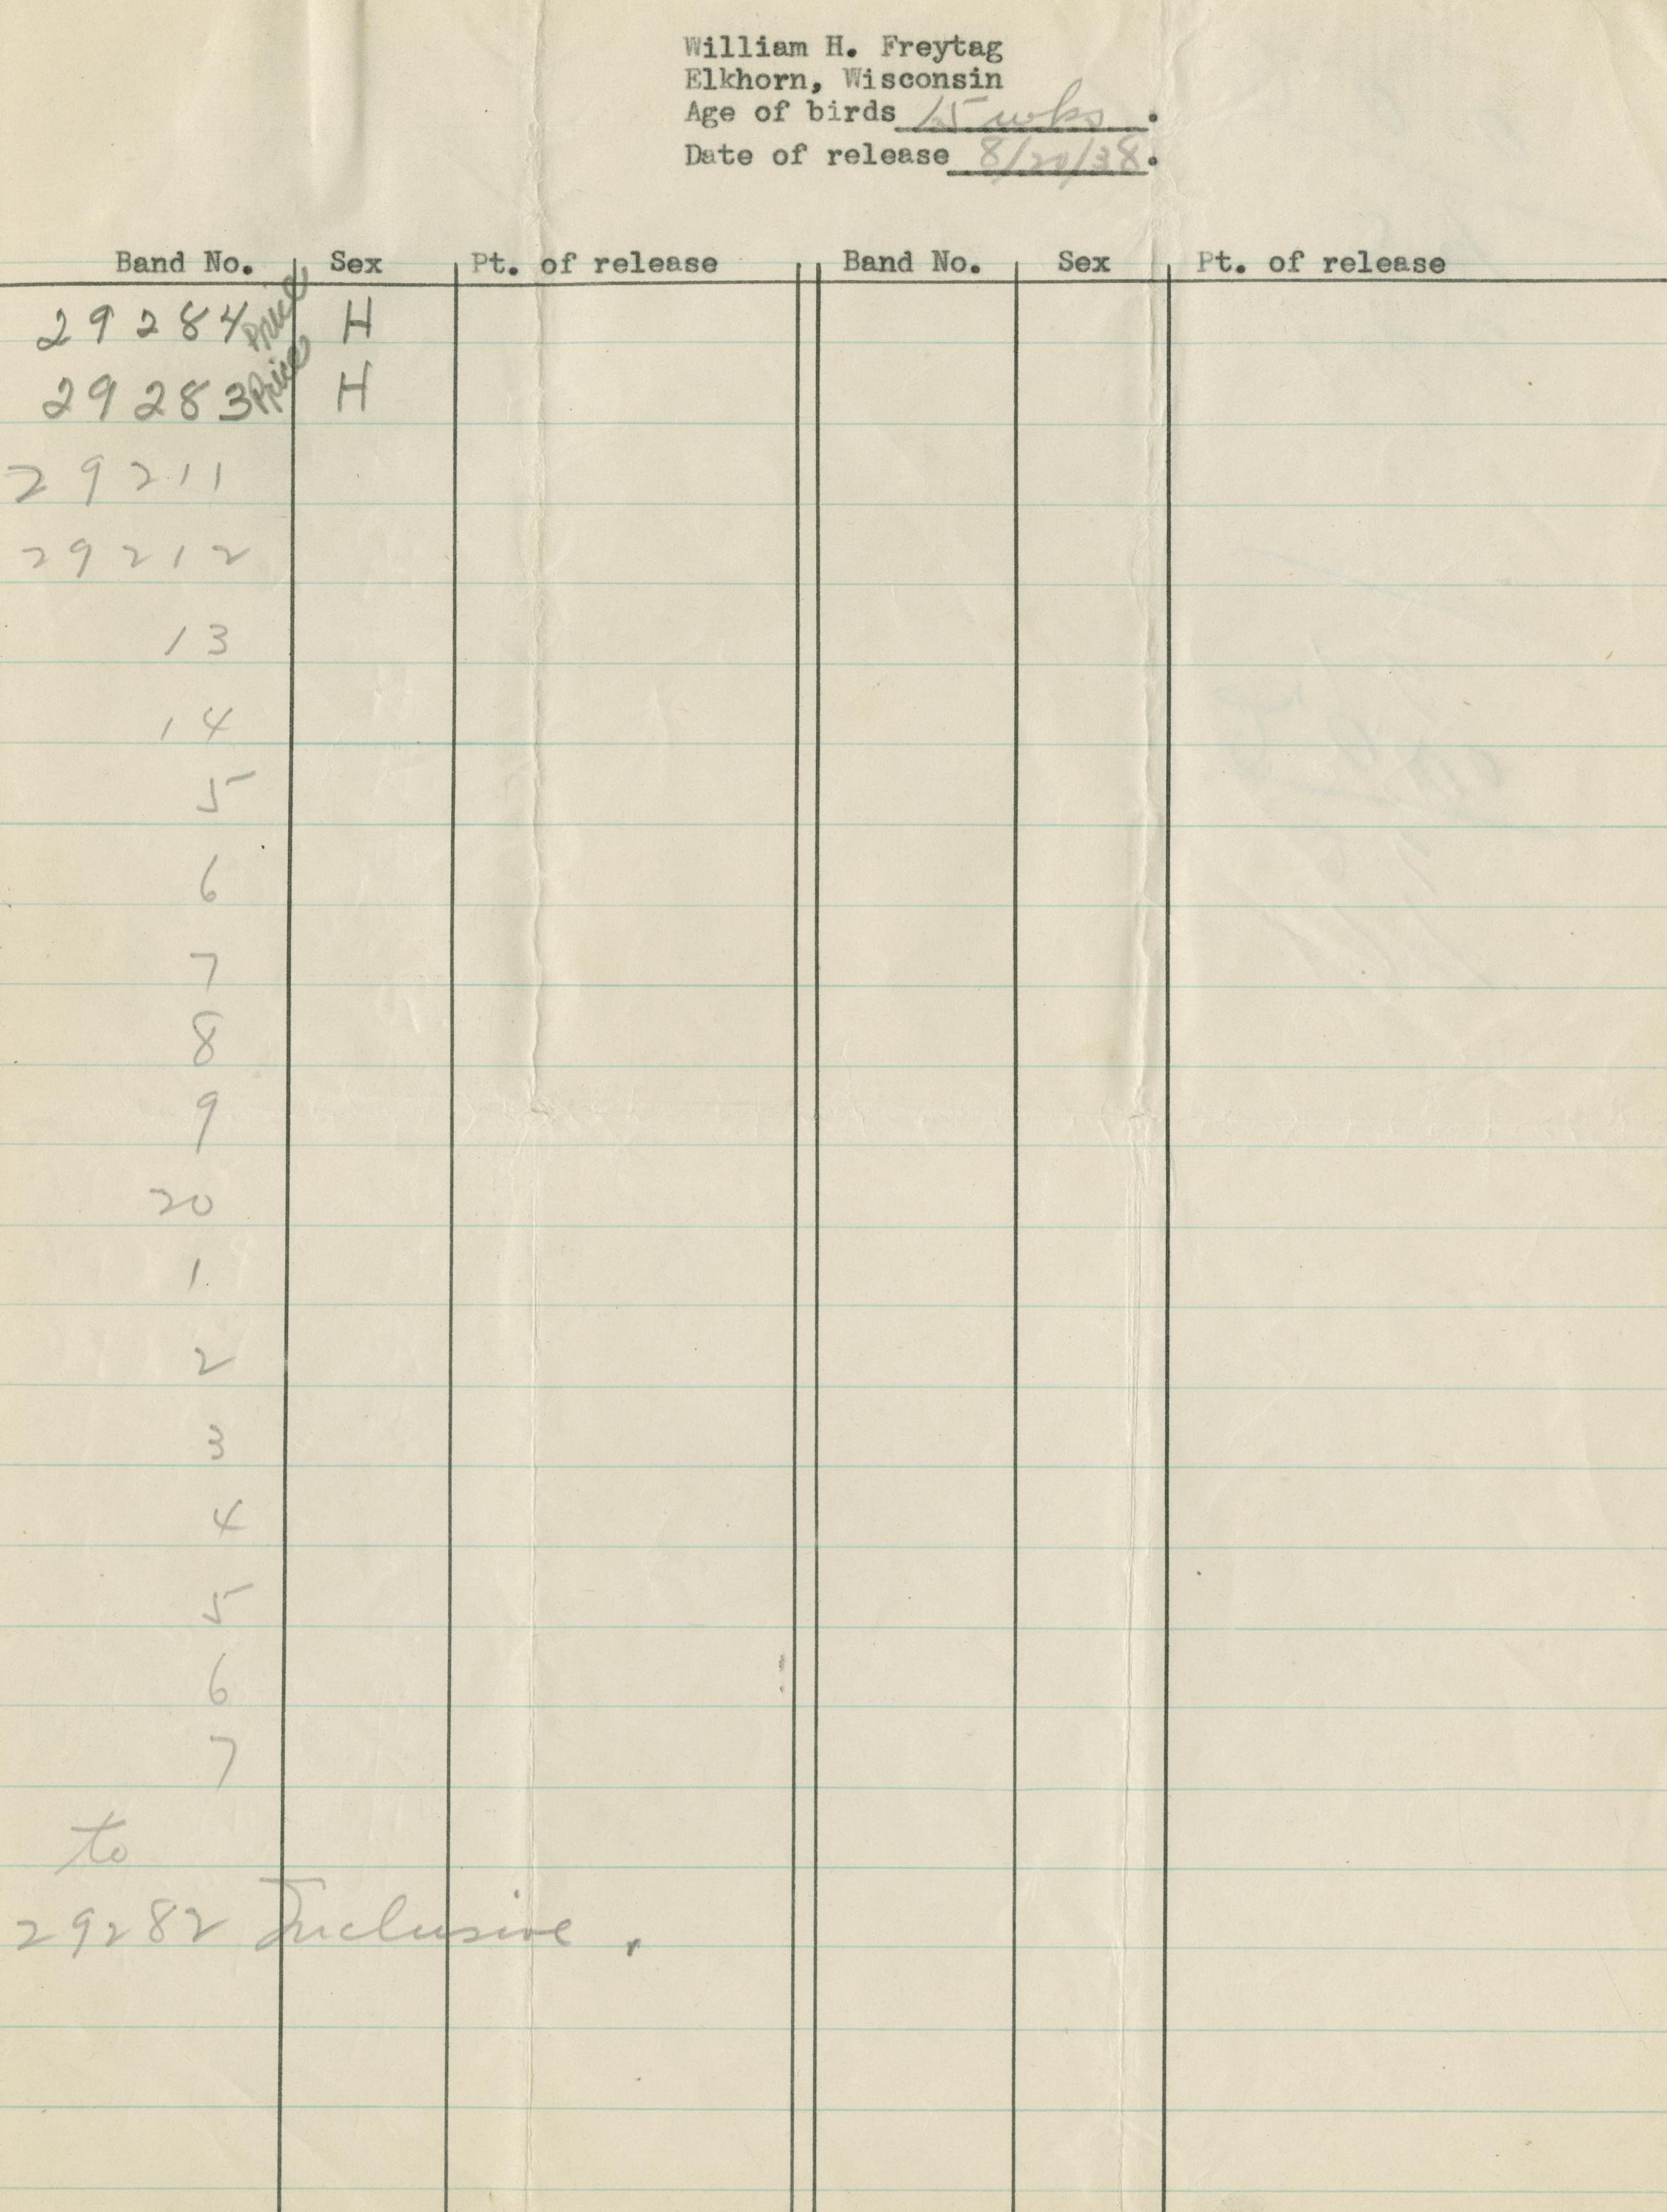 William H. Freytag
Elkhorn, Wisconsin
Age of birds 15 wks.
Date of release 8/20/38.
Band No. Sex Pt. of release Band No. Sex Pt. of release
29284 Price H
29283 Price H
29211
29212
13
14
5
6
7
8
9
20
1
2
3
4
5
6
7
to
29282 Inclusive.